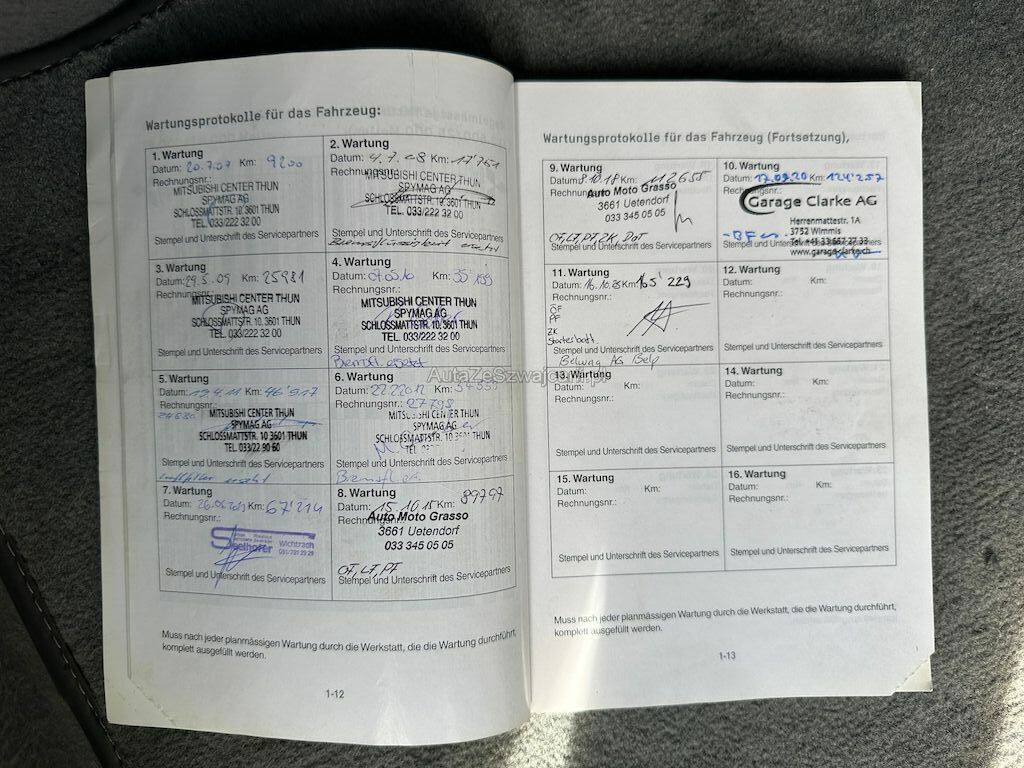 Wartungsprotokolle für das Fahrzeug:
1. Wartung
Datum: 20.7.07 Km: 9200
Rechnungsnr.:
MITSUBISHI CENTER THUN
SPYMAG AG
SCHLOSSMATTSTR. 10, 3601 THUN
TEL. 033/222 32 00
Stempel und Unterschrift des Servicepartners
2. Wartung
Datum: 4.7.08 Km: 17'761
Rechnungsnr.
MITSUBISHI CENTER THUN
SPYMAG AG
SCHLOSSMATTSTR. 10, 3601 THUN
TEL. 033/222 32 00
Stempel und Unterschrift des Servicepartners
3. Wartung
Datum: 29.5.09 Km: 25981
Rechnungsnr.:
MITSUBISHI CENTER THUN
SPYMAG AG
SCHLOSSMATTSTR. 10, 3601 THUN
TEL. 033/222 32 00
Stempel und Unterschrift des Servicepartners
4. Wartung
Datum: Km: 35'159
Rechnungsnr.:
MITSUBISHI CENTER THUN
SPYMAG AG
SCHLOSSMATTSTR. 10, 3601 THUN
TEL. 033/222 32 00
Stempel und Unterschrift des Servicepartners
5. Wartung
Datum: 19.4.11 Km: 46'917
Rechnungsnr.:
MITSUBISHI CENTER THUN
SPYMAG AG
SCHLOSSMATTSTR. 10 3601 THUN
Stempel und Unterschrift des Servicepartners
Luftfilter ersetzt
6. Wartung
Datum: 22.2.2012 Km:
Rechnungsnr.: 27798
MITSUBISHI CENTER THUN
SPYMAG AG
SCHLOSSMATTSTR. 10 3601 THUN
Stempel und Unterschrift des Servicepartners
7. Wartung
Datum: Km: 67'214
Rechnungsnr.:
Seelhofer
Wichtrach
Stempel und Unterschrift des Servicepartners
8. Wartung
Datum: 15.10.15 Km: 89797
Rechnungsnr.
Auto Moto Grasso
3661 Uetendorf
033 345 05 05
OF, LF, PF
Stempel und Unterschrift des Servicepartners
Muss nach jeder planmässigen Wartung durch die Werkstatt, die die Wartung durchführt,
komplett ausgefüllt werden.
1-12
Wartungsprotokolle für das Fahrzeug (Fortsetzung),
9. Wartung
Datum: 8.10.18 Km: 112655
Rechnungsnr.
Auto Moto Grasso
3661 Uetendorf
033 345 05 05
OF, LF, PF, ZK, DOT
Stempel und Unterschrift des Servicepartners
10. Wartung
Datum: 17.09.20 Km: 124'257
Rechnungsnr.:
Garage Clarke AG
Herrenmattestr. 1A
3752 Wimmis
Tel. +41 33 657 27 33
www.garageclarke.ch
- BF
Stempel und Unterschrift des Servicepartners
11. Wartung
Datum: 16.10.23 Km: 165'229
Rechnungsnr.:
ÖF
PF
ZK
Starterbatt.
Stempel und Unterschrift des Servicepartners
Belwag AG Belp
12. Wartung
Datum: Km:
Rechnungsnr.:
Stempel und Unterschrift des Servicepartners
13. Wartung
Datum: Km:
Rechnungsnr.:
Stempel und Unterschrift des Servicepartners
14. Wartung
Datum: Km:
Rechnungsnr.:
Stempel und Unterschrift des Servicepartners
15. Wartung
Datum: Km:
Rechnungsnr.:
Stempel und Unterschrift des Servicepartners
16. Wartung
Datum: Km:
Rechnungsnr.:
Stempel und Unterschrift des Servicepartners
Muss nach jeder planmässigen Wartung durch die Werkstatt, die die Wartung durchführt,
komplett ausgefüllt werden.
1-13
AutaZeSzwajcarii.pl